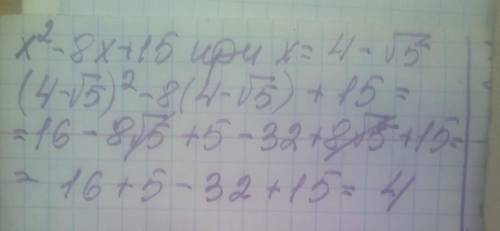 x² - 8x + 15 при x = 4 - √5
(4-√5)² - 8(4-√5) + 15 =
= 16 - 8√5 + 5 - 32 + 8√5 + 15 =
= 16 + 5 - 32 + 15 = 4